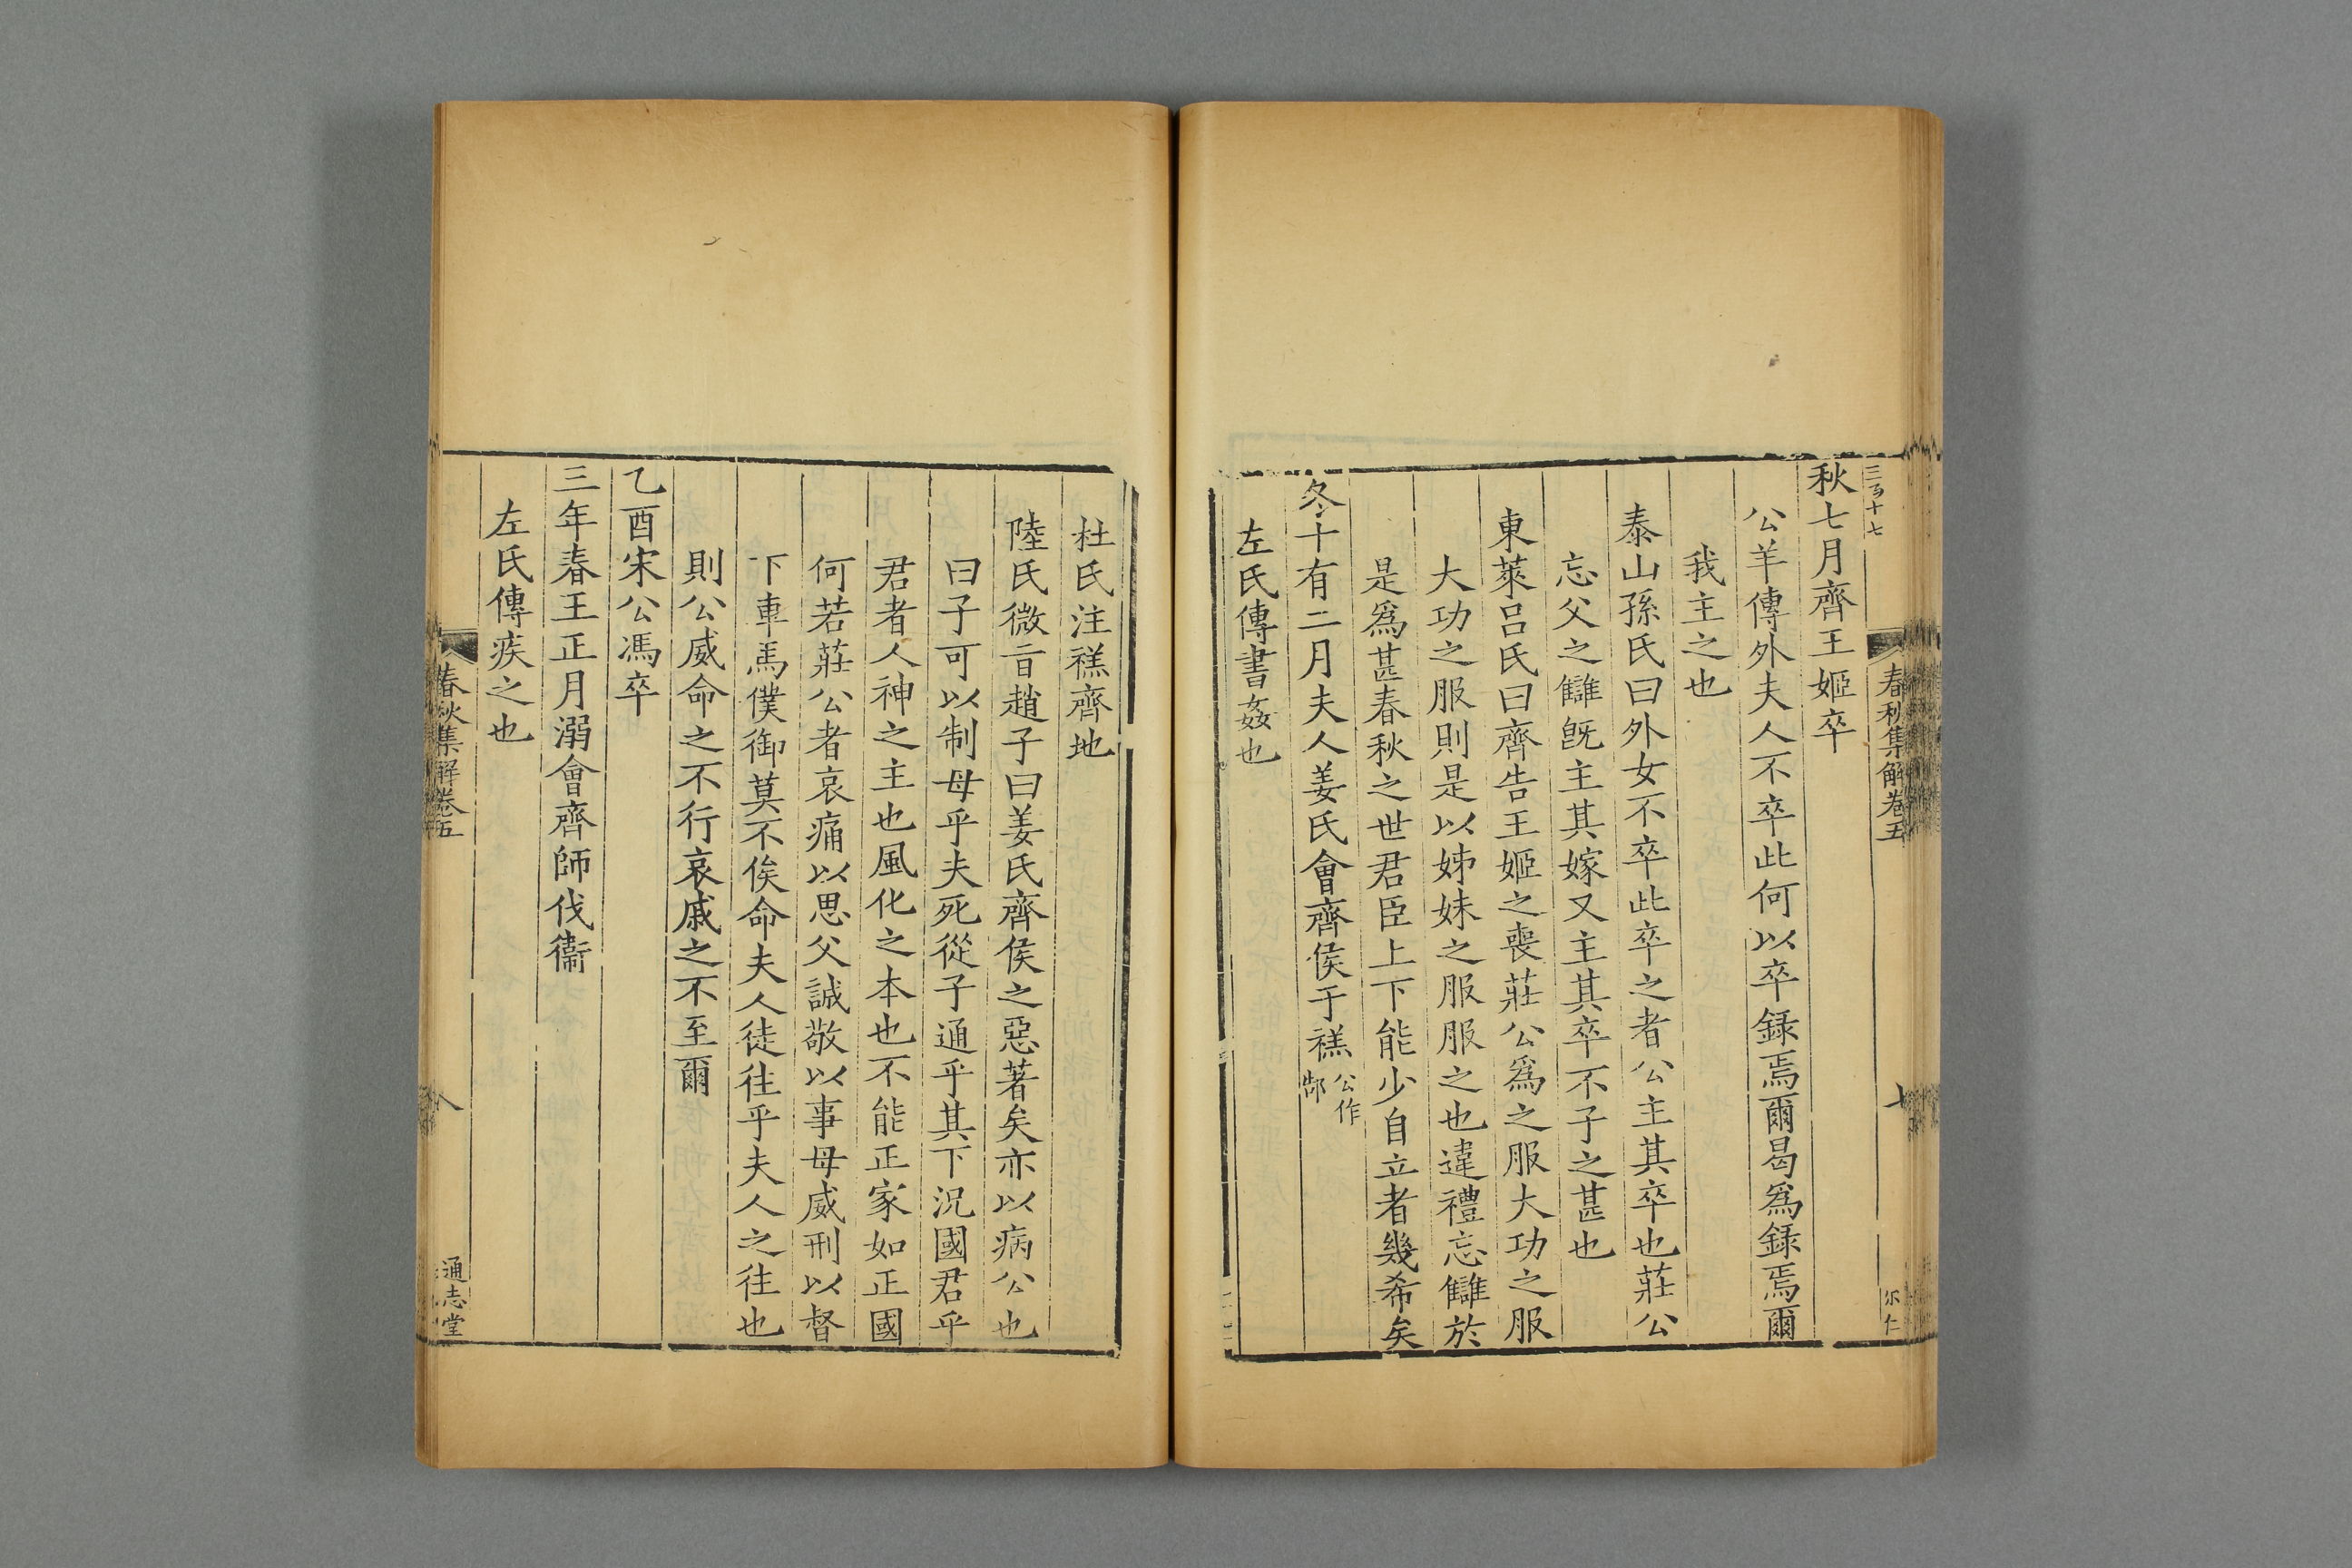 三百十七
春秋集解卷五
七
尔仁
秋七月齊王姬卒
公羊傳外夫人不卒此何以卒録焉爾曷爲録焉爾
我主之也
泰山孫氏曰外女不卒此卒之者公主其卒也莊公
忘父之讎旣主其嫁又主其卒不子之甚也
東萊呂氏曰齊告王姬之喪莊公爲之服大功之服
大功之服則是以姊妹之服服之也違禮忘讎於
是爲甚春秋之世君臣上下能少自立者幾希矣
冬十有二月夫人姜氏會齊侯于禚公作郜
左氏傳書姦也
杜氏注禚齊地
陸氏微旨趙子曰姜氏齊侯之惡著矣亦以病公也
曰子可以制母乎夫死從子通乎其下況國君乎
君者人神之主也風化之本也不能正家如正國
何若莊公者哀痛以思父誠敬以事母威刑以督
下車馬僕御莫不俟命夫人徒往乎夫人之往也
則公威命之不行哀戚之不至爾
乙酉宋公馮卒
三年春王正月溺會齊師伐衞
左氏傳疾之也
春秋集解卷五
八
通志堂